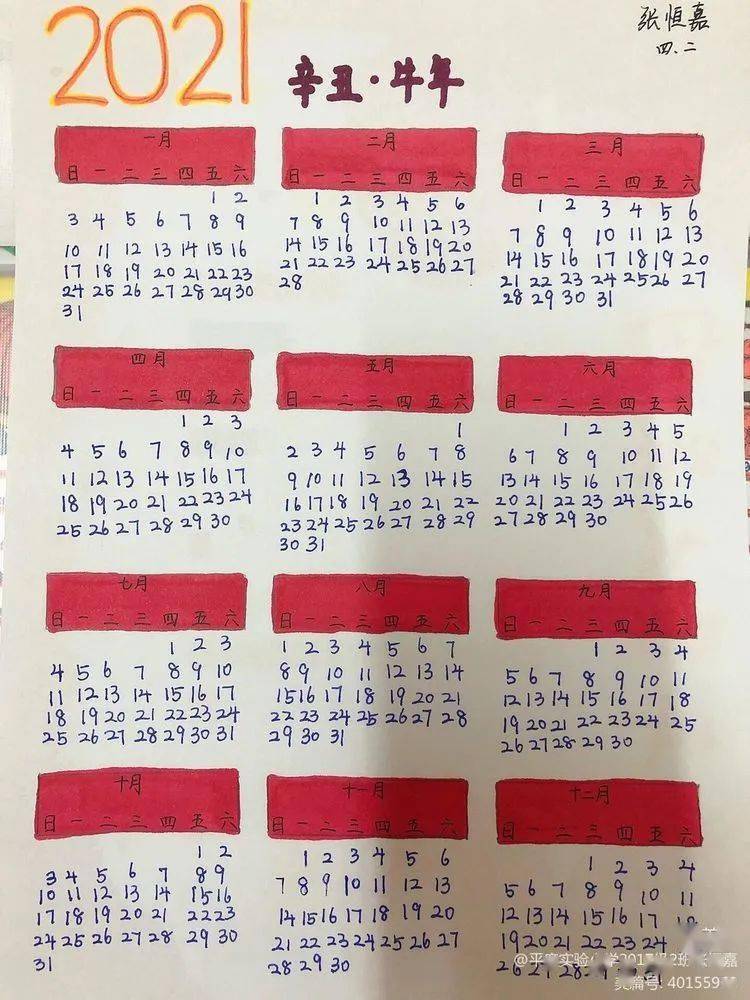 2021
辛丑·牛年
张恒嘉
四.二
一月
日 一 二 三 四 五 六
1 2
3 4 5 6 7 8 9
10 11 12 13 14 15 16
17 18 19 20 21 22 23
24 25 26 27 28 29 30
31
二月
日 一 二 三 四 五 六
1 2 3 4 5 6
7 8 9 10 11 12 13
14 15 16 17 18 19 20
21 22 23 24 25 26 27
28
三月
日 一 二 三 四 五 六
1 2 3 4 5 6
7 8 9 10 11 12 13
14 15 16 17 18 19 20
21 22 23 24 25 26 27
28 29 30 31
四月
日 一 二 三 四 五 六
1 2 3
4 5 6 7 8 9 10
11 12 13 14 15 16 17
18 19 20 21 22 23 24
25 26 27 28 29 30
五月
日 一 二 三 四 五 六
1
2 3 4 5 6 7 8
9 10 11 12 13 14 15
16 17 18 19 20 21 22
23 24 25 26 27 28 29
30 31
六月
日 一 二 三 四 五 六
1 2 3 4 5
6 7 8 9 10 11 12
13 14 15 16 17 18 19
20 21 22 23 24 25 26
27 28 29 30
七月
日 一 二 三 四 五 六
1 2 3
4 5 6 7 8 9 10
11 12 13 14 15 16 17
18 19 20 21 22 23 24
25 26 27 28 29 30 31
八月
日 一 二 三 四 五 六
1 2 3 4 5 6 7
8 9 10 11 12 13 14
15 16 17 18 19 20 21
22 23 24 25 26 27 28
29 30 31
九月
日 一 二 三 四 五 六
1 2 3 4
5 6 7 8 9 10 11
12 13 14 15 16 17 18
19 20 21 22 23 24 25
26 27 28 29 30
十月
日 一 二 三 四 五 六
1 2
3 4 5 6 7 8 9
10 11 12 13 14 15 16
17 18 19 20 21 22 23
24 25 26 27 28 29 30
31
十一月
日 一 二 三 四 五 六
1 2 3 4 5 6
7 8 9 10 11 12 13
14 15 16 17 18 19 20
21 22 23 24 25 26 27
28 29 30
十二月
日 一 二 三 四 五 六
1 2 3 4
5 6 7 8 9 10 11
12 13 14 15 16 17 18
19 20 21 22 23 24
26 27 28 31
@平度实验小学2017级2班
美篇号: 401559